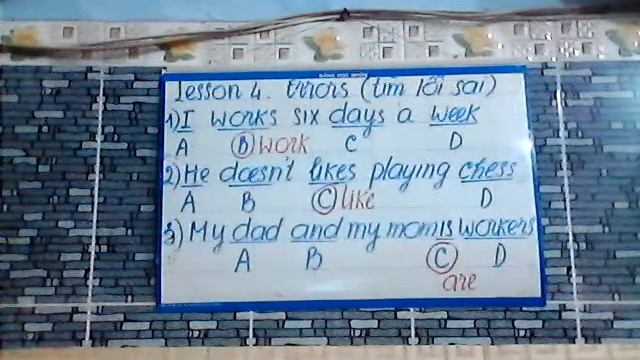 Lesson 4. Errors (tìm lỗi sai)
1) I works six days a week
A B work C D
2) He doesn't likes playing chess
A B C like D
3) My dad and my mom is workers
A B C D
are